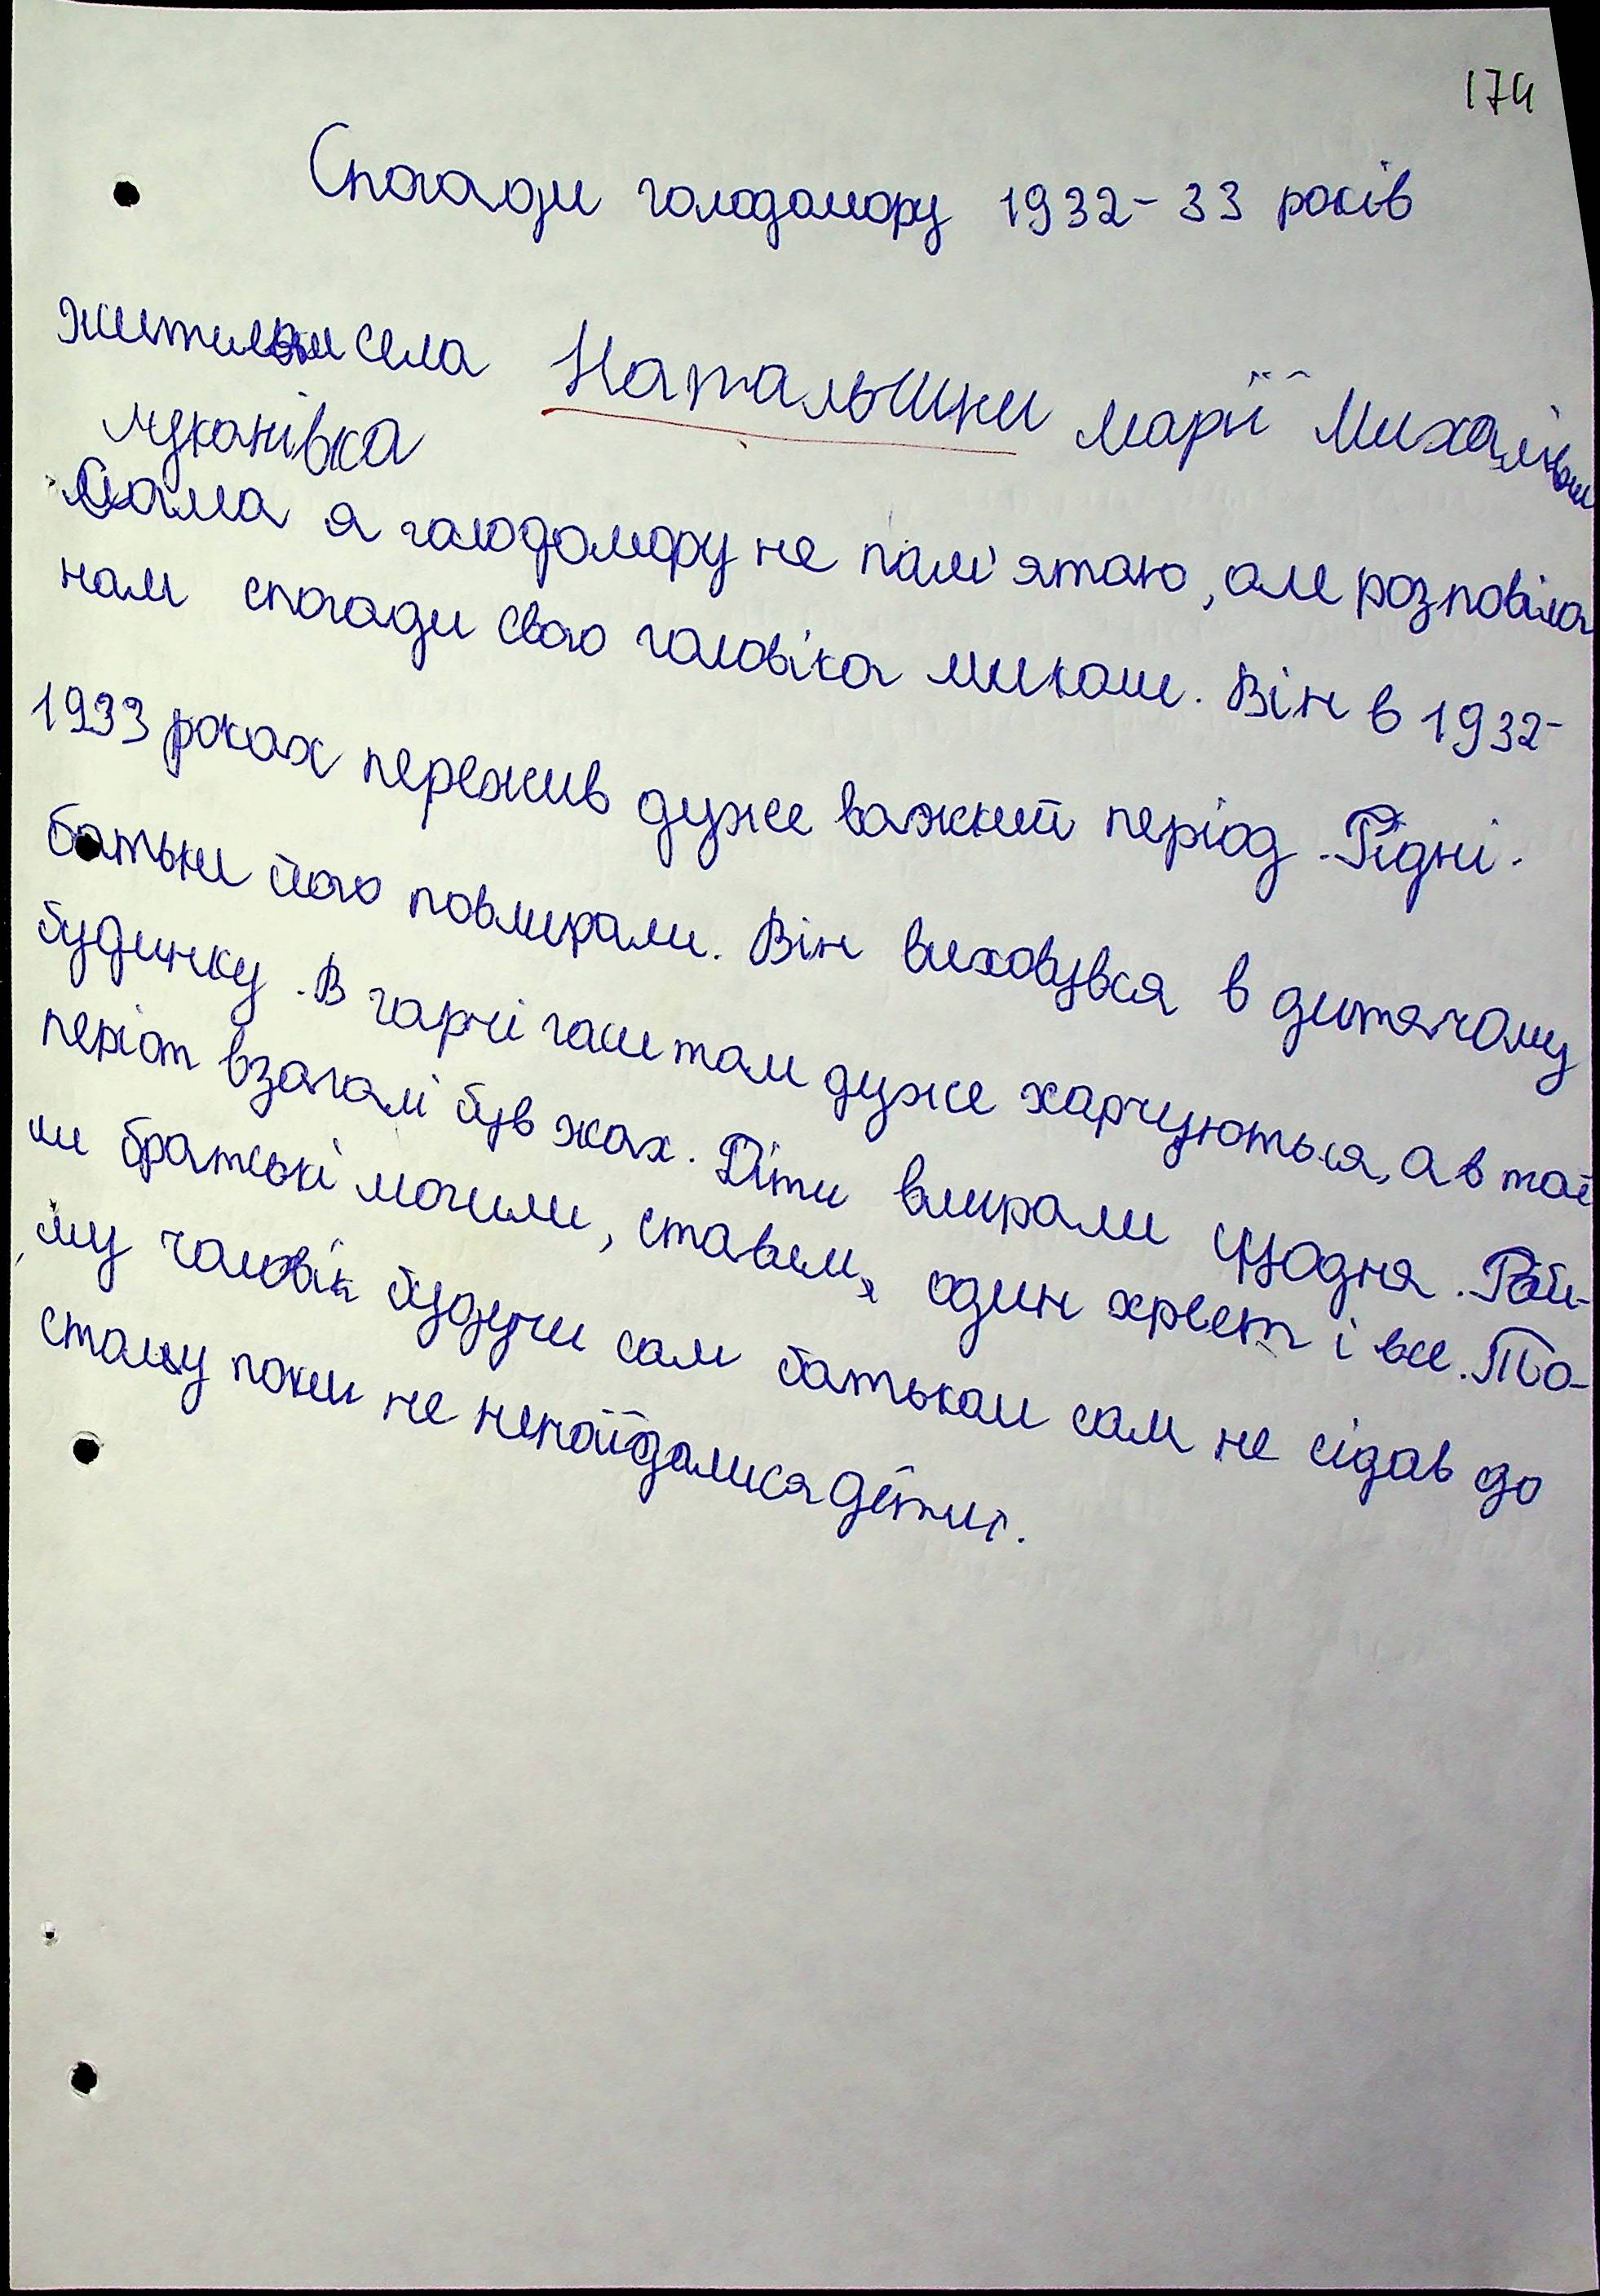 174
Спогади голодомору 1932-33 років
жительки села Натальшки марії Михайлівни
луканівка
Сама я голодомору не пам'ятаю, але розповіла
нам спогади свого чоловіка миколи. Він в 1932-
1933 роках пережив дуже важкий період. Рідні
батьки його повмирали. Він виховувся в дитячому
будинку. В гарні часи там дуже харчуються, а в той
періот взагалі був жах. Діти вмирали щодня. Роби-
ли братські могили, ставили один хрест і все. То-
му чоловік будучи сам батьком сам не сідав до
столу поки не непоїдалися діти.